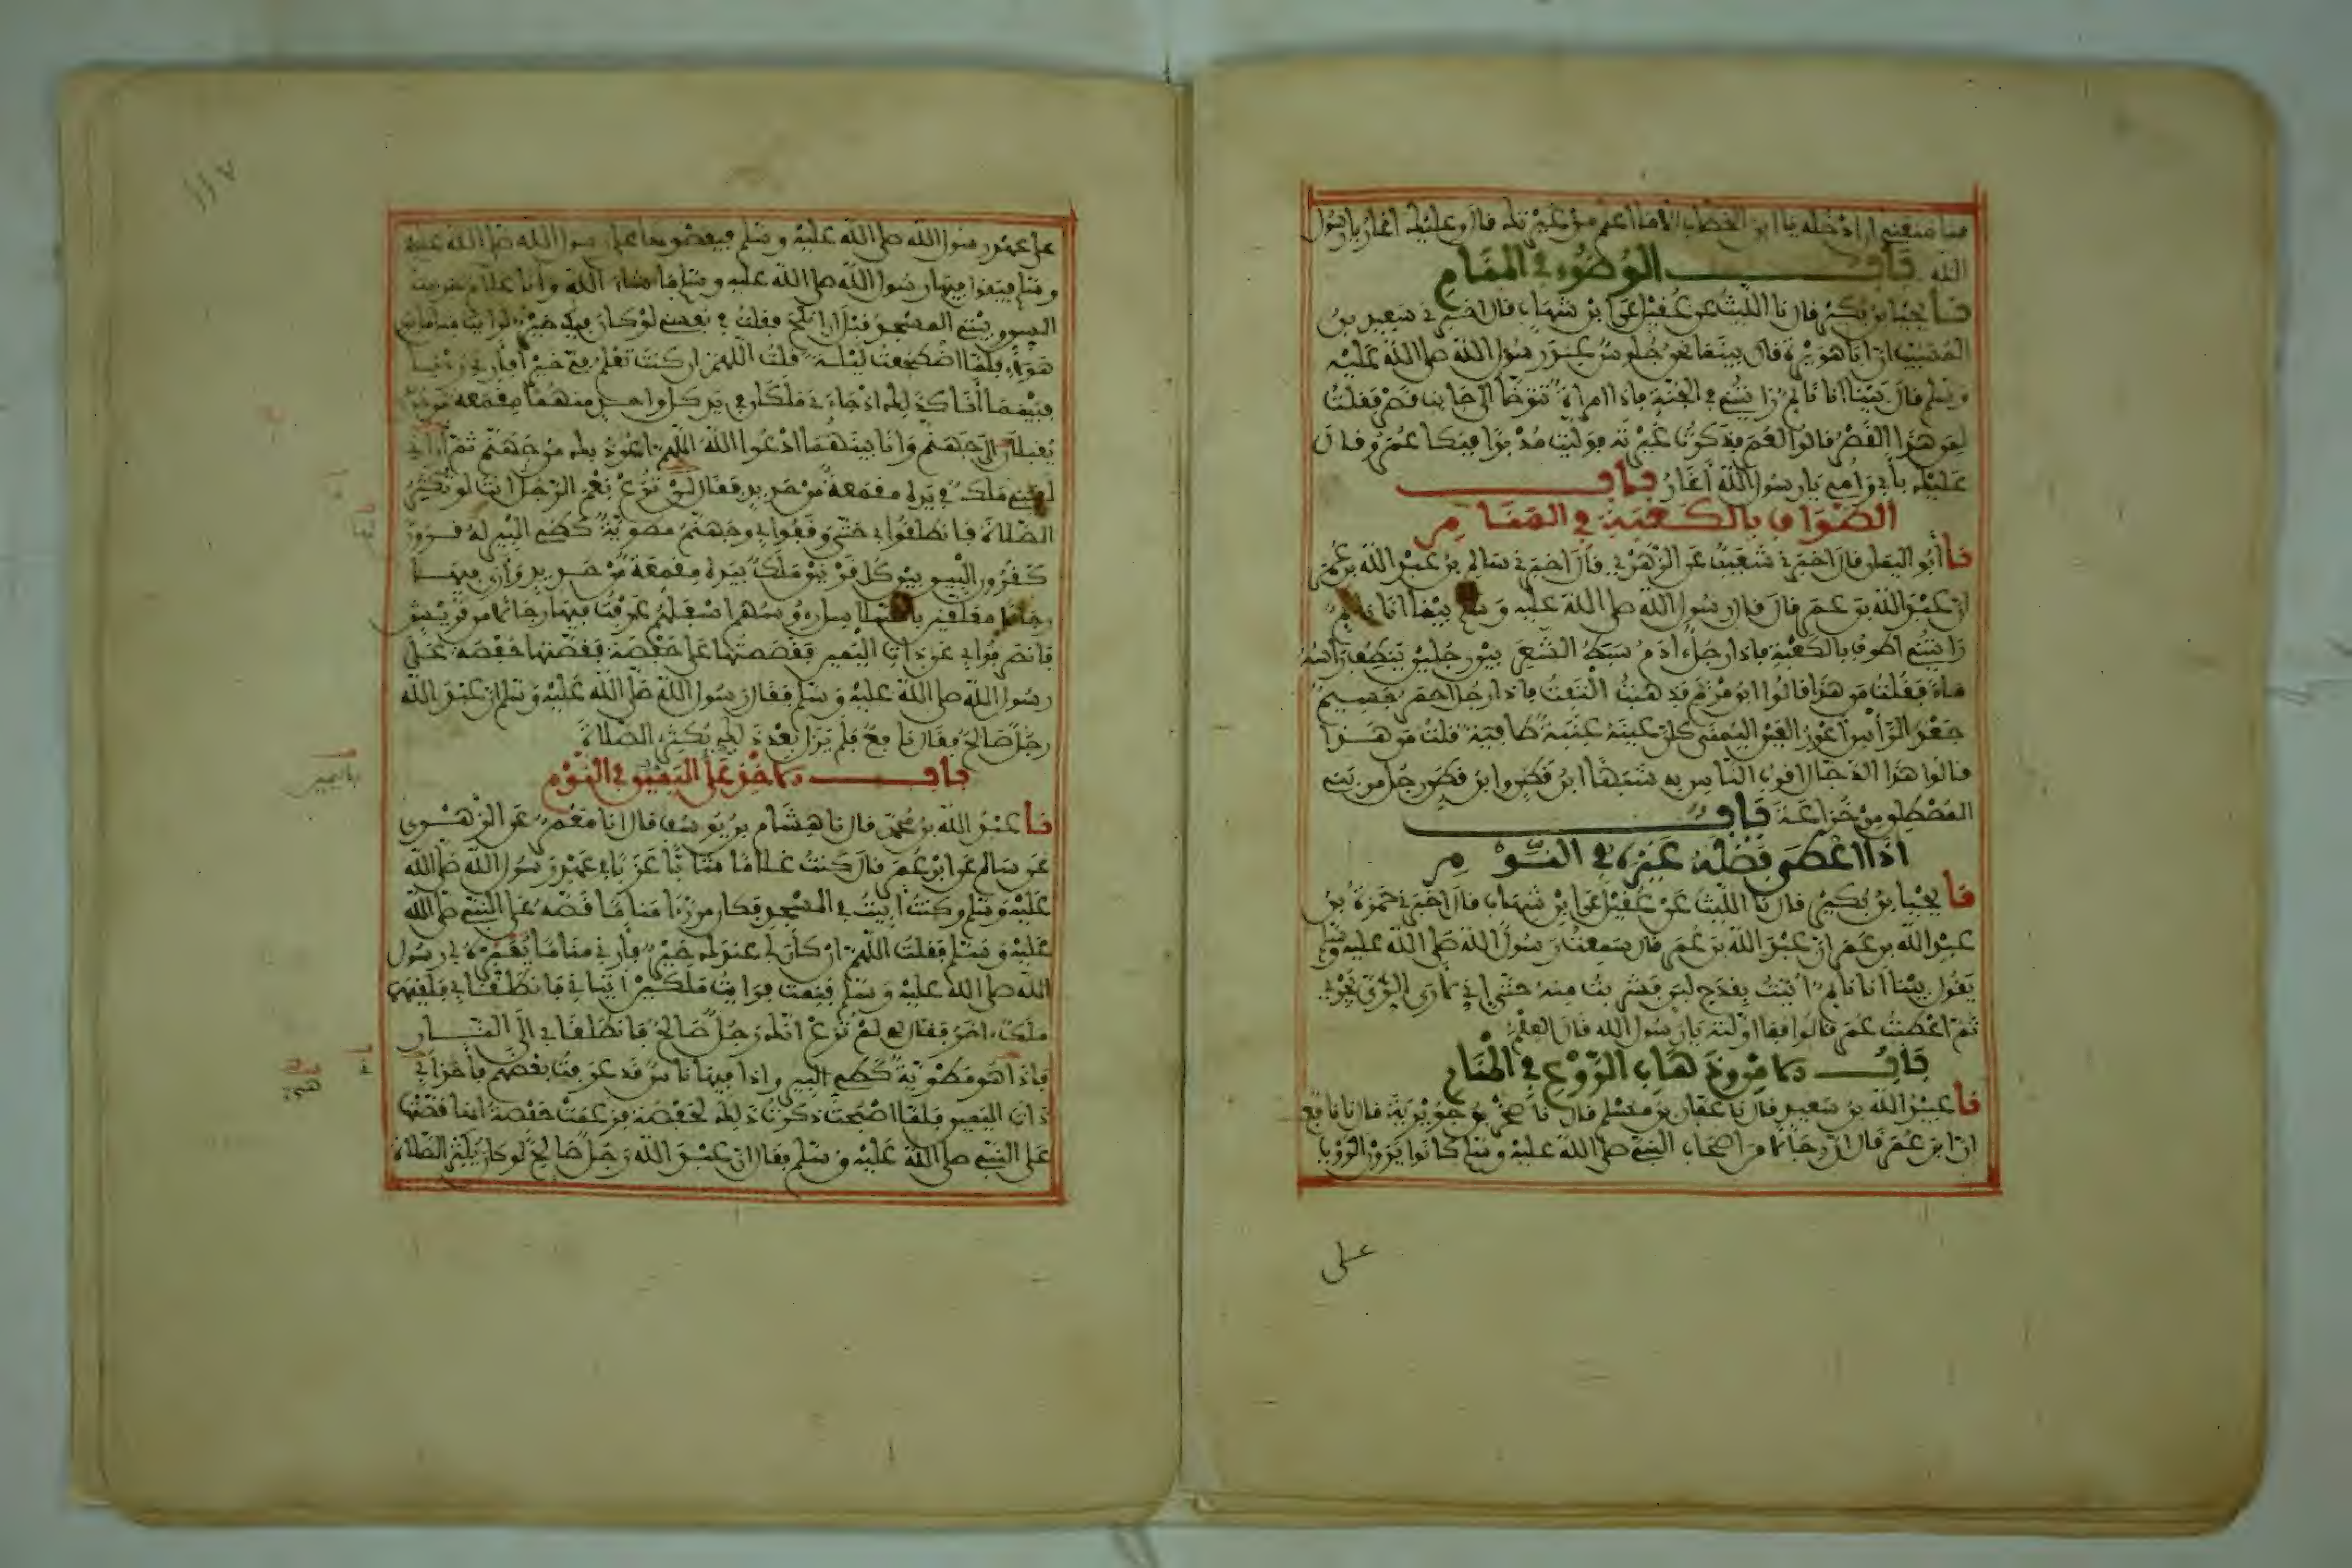 فما منعني ان ادخله يا ابن الخطاب الا ما اعلم من غيرتك قال وعليك اغار يا رسول
الله باب الوضوء في المنام
نا يحيا بن بكير قال نا الليث عن عقيل عن ابن شهاب قال اخبرني سعيد بن
المسيب ان ابا هريرة قال بينما نحن جلوس عند رسول الله صلى الله عليه
وسلم قال بينا انا نائم رايتني في الجنة فاذا امراة تتوضا الى جانب قصر فقلت
لمن هذا القصر قالوا لعمر فذكرت غيرته فوليت مدبرا فبكا عمر وقال
عليك بابي وامي يا رسول الله اغار باب
الطواف بالكعبة في المنام
نا ابو اليمان قال اخبرني شعيب عن الزهري قال اخبرني سالم بن عبد الله بن عمر
ان عبد الله بن عمر قال قال رسول الله صلى الله عليه وسلم بينما انا نائم
رايتني اطوف بالكعبة فاذا رجل ادم سبط الشعر بين رجلين ينطف راسه
ماء فقلت من هذا قالوا ابن مريم فذهبت التفت فاذا رجل احمر جسيم
جعد الراس اعور العين اليمنى كان عينه عنبة طافية قلت من هذا
قالوا هذا الدجال اقرب الناس به شبها ابن قطن وابن قطن رجل من بني
المصطلق من خزاعة باب
اذا اعطى فضله غيره في النوم
نا يحيا بن بكير قال نا الليث عن عقيل عن ابن شهاب قال اخبرني حمزة بن
عبد الله بن عمر ان عبد الله بن عمر قال سمعت رسول الله صلى الله عليه وسلم
يقول بينا انا نائم اتيت بقدح لبن فشربت منه حتى اني لارى الري يجري
ثم اعطيت عمر قالوا فما اولته يا رسول الله قال العلم
باب الامن وذهاب الروع في المنام
نا عبيد الله بن سعيد قال نا عفان بن مسلم قال نا صخر بن جويرية قال نا نافع
ان ابن عمر قال ان رجالا من اصحاب النبي صلى الله عليه وسلم كانوا يرون الرؤيا
على
١١٧
على عهد رسول الله صلى الله عليه وسلم فيقصونها على رسول الله صلى الله عليه
وسلم فيقول فيها رسول الله صلى الله عليه وسلم ما شاء الله وانا غلام حديث
السن وبيتي المسجد قبل ان انكح فقلت في نفسي لو كان فيك خير لرايت مثل ما يرى
هؤلاء فلما اضطجعت ليلة قلت اللهم ان كنت تعلم في خيرا فارني رؤيا
فبينما انا كذلك اذ جاءني ملكان في يد كل واحد منهما مقمعة من حديد
يقبلان الى جهنم وانا بينهما ادعوا الله اللهم اعوذ بك من جهنم ثم اراني
لقيني ملك في يده مقمعة من حديد فقال لن ترع نعم الرجل انت لو تكثر
الصلاة فانطلقوا بي حتى وقفوا بي وجهنم مطوية كطي البير له قرون
كقرون البير بين كل قرنين ملك بيده مقمعة من حديد وارى فيها
رجالا معلقين بالسلاسل رءوسهم اسفلهم عرفت فيها رجالا من قريش
فانصرفوا بي عن ذات اليمين فقصصتها على حفصة فقصتها حفصة على
رسول الله صلى الله عليه وسلم فقال رسول الله صلى الله عليه وسلم ان عبد الله
رجل صالح فقال نافع فلم يزل بعد ذلك يكثر الصلاة
باب الاخذ على اليمين في النوم
نا عبد الله بن محمد قال نا هشام بن يوسف قال انا معمر عن الزهري
عن سالم عن ابن عمر قال كنت غلاما شابا عزبا في عهد رسول الله صلى الله
عليه وسلم وكنت ابيت في المسجد فكان من رءا مناما قصه على النبي صلى الله
عليه وسلم فقلت اللهم ان كان لي عندك خير فارني مناما يعبره لي رسول
الله صلى الله عليه وسلم فنمت فرايت ملكين اتياني فانطلقا بي فلقيهما
ملك اخر فقال لي لم ترع انك رجل صالح فانطلقا بي الى النار
فاذا هي مطوية كطي البير واذا فيها ناس قد عرفت بعضهم فاخذا بي
ذات اليمين فلما اصبحت ذكرت ذلك لحفصة فزعمت حفصة انها قصتها
على النبي صلى الله عليه وسلم فقال ان عبد الله رجل صالح لو كان يكثر الصلاة